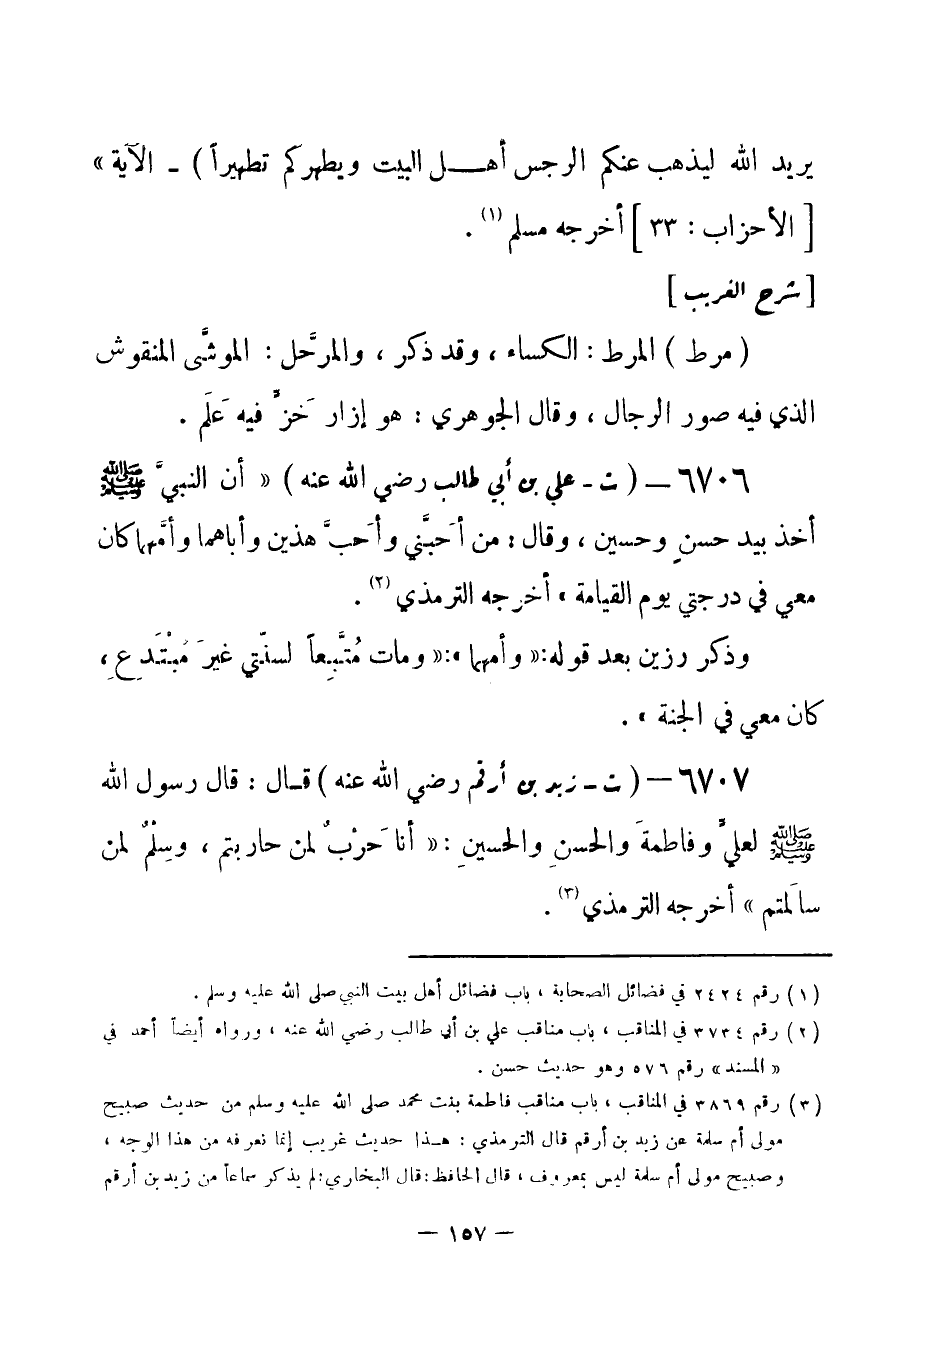 يريد الله ليذهب عنكم الرجس أهـــل البيت ويطهركم تطهيراً ) ـ الآية »
[ الأحزاب : ٣٣ ] أخرجه مسلم (١) .
[ شرح الغريب ]
( مرط ) المرط : الكساء ، وقد ذكر ، والمرحَّل : الموشَّى المنقوش
الذي فيه صور الرجال ، وقال الجوهري : هو إزار خَزٍّ فيه عَلَم .
٦٧٠٦ – ( ت ـ علي بن أبي طالب رضي الله عنه ) « أن النبيَّ ﷺ
أخذ بيد حسنٍ وحسين ، وقال : من أحَبَّني وأحَبَّ هذين وأباهما وأمَّهما كان
معي في درجتي يوم القيامة » أخرجه الترمذي (٢) .
وذكر رزين بعد قوله:« وأمهما »:« ومات مُتَّبِعاً لسنّتي غيرَ مُبْتَدِعٍ ،
كان معي في الجنة » .
٦٧٠٧ – ( ت ـ زيد بن أرقم رضي الله عنه ) قـال : قال رسول الله
ﷺ لعليٍّ وفاطمةَ والحسنِ والحسينِ :« أنا حَرْبٌ لمن حاربتم ، وسِلْمٌ لمن
سالَمتم » أخرجه الترمذي (٣) .
(١) رقم ٢٤٢٤ في فضائل الصحابة ، باب فضائل أهل بيت النبي صلى الله عليه وسلم .
(٢) رقم ٣٧٣٤ في المناقب ، باب مناقب علي بن أبي طالب رضي الله عنه ، ورواه أيضاً أحمد في
« المسند » رقم ٥٧٦ وهو حديث حسن .
(٣) رقم ٣٨٦٩ في المناقب ، باب مناقب فاطمة بنت محمد صلى الله عليه وسلم من حديث صبيح
مولى أم سلمة عن زيد بن أرقم قال الترمذي : هـذا حديث غريب إنما نعرفه من هذا الوجه ،
وصبيح مولى أم سلمة ليس بمعروف ، قال الحافظ : قال البخاري : لم يذكر سماعاً من زيد بن أرقم
– ١٥٧ –